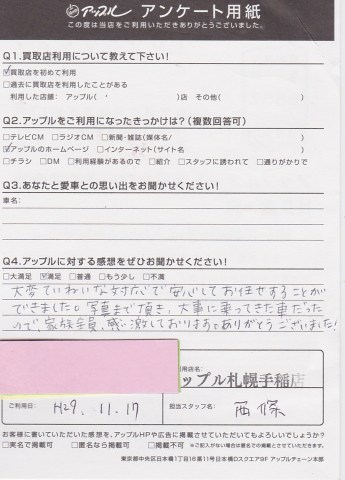 アップル アンケート用紙
この度は当店をご利用いただきありがとうございました。
Q1.買取店利用について教えて下さい!
☑買取店を初めて利用
□過去に買取店を利用したことがある
利用した店舗： アップル( )店 その他( )
Q2.アップルをご利用になったきっかけは?(複数回答可)
□テレビCM □ラジオCM □新聞・雑誌(媒体名/ )
☑アップルのホームページ □インターネット(サイト名 )
□チラシ □DM □利用経験があるので □紹介 □スタッフに誘われて □通りがかりで
Q3.あなたと愛車との思い出をお聞かせください!
車名:
Q4.アップルに対する感想をぜひお聞かせください!
□大満足 ☑満足 □普通 □もう少し □不満
大変ていねいな対応で安心してお任せすることが
できました。写真まで頂き、大事に乗ってきた車だった
ので、家族全員、感激しております。ありがとうございました!
用店名:
アップル札幌手稲店
ご利用日: H29.11.17
担当スタッフ名: 西條
お客様に書いていただいた感想を、アップルHPや広告に掲載させていただいてもよろしいでしょうか?
□実名で掲載可 □匿名なら掲載可 □掲載不可 ※ご記入がない場合は匿名での掲載とさせていただきます。
東京都中央区日本橋1丁目16番11号日本橋Dスクエア9F アップルチェーン本部